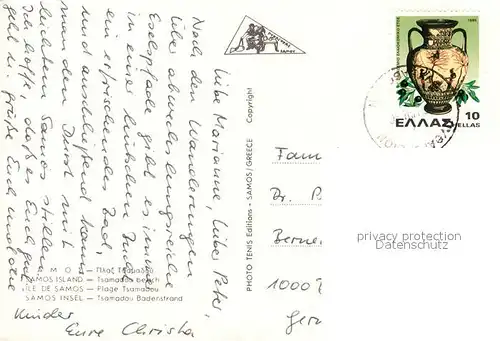 Liebe Marianne, lieber Peter,
Nach den Wanderungen
über abwechslungsreiche
Eselspfade gibt es immer
in einer hübschen Bucht
ein erfrischendes Bad,
und anschließend kann
man den Durst mit
leichtem Samos stillen.
Ich hoffe daß es Euch gut
geht u. grüße Euch und die
Kinder
Eure Christa
ΠΛΑΖ ΤΣΑΜΑΔΟΥ
SAMOS ISLAND — Tsamadou beach
ILE DE SAMOS — Plage Tsamadou
SAMOS INSEL — Tsamadou Badenstrand
PHOTO TENIS Editions - SAMOS/GREECE Copyright
SAMOS
ΕΛΛΑΣ 10
HELLAS
Fam
Dr. P
Berne
1000
Ger
privacy protection
Datenschutz